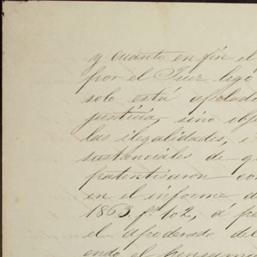 y cuanto en fin el
por el Juez legó
solo está apelado
justicia, sino obj
las ilegalidades, e
sustanciales de q
patentizaron co
en el informe d
1865 f. 102, á f
el apoderado del
endo el